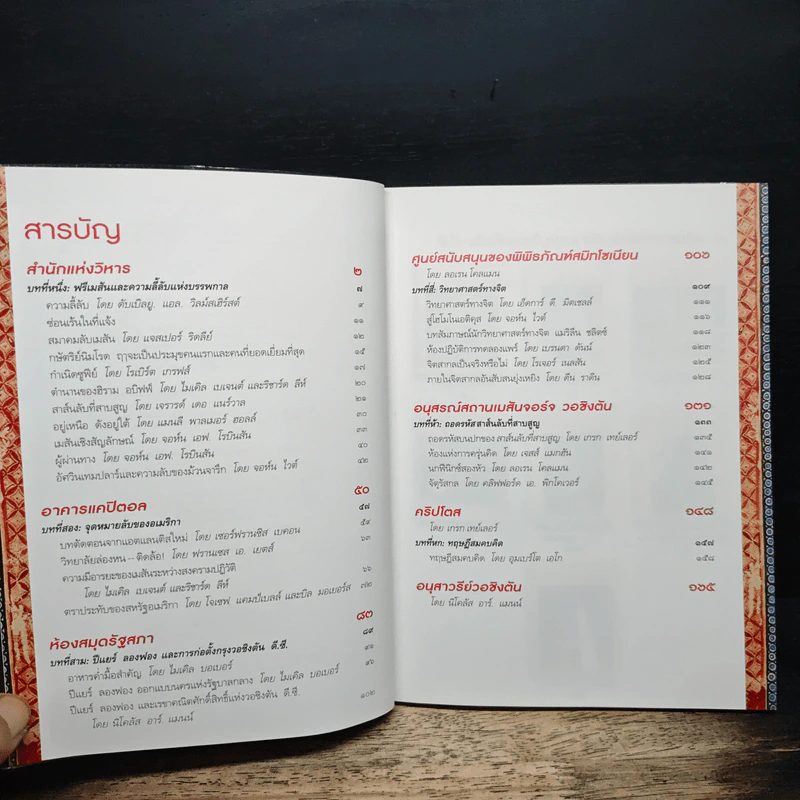 สารบัญ
สำนักแห่งวิหาร ๒
บทที่หนึ่ง: ฟรีเมสันและความลี้ลับแห่งบรรพกาล ๗
ความลี้ลับ โดย ดับเบิลยู. แอล. วิลม์สเฮิร์สต์ ๙
ซ่อนเร้นในที่แจ้ง ๑๑
สมาคมลับเมสัน โดย แจสเปอร์ ริดลีย์ ๑๒
กษัตริย์นิมโรด ฤๅจะเป็นประมุขคนแรกและคนที่ยอดเยี่ยมที่สุด ๑๕
กำเนิดซูฟีย์ โดย โรเบิร์ต เกรฟส์ ๑๗
ตำนานของฮิราม อบิฟฟ์ โดย ไมเคิล เบเจนต์ และริชาร์ด ลีห์ ๒๐
สาส์นลับที่สาบสูญ โดย เจราร์ด เดอ แนร์วาล ๒๑
อยู่เหนือ ดังอยู่ใต้ โดย แมนลี พาลเมอร์ ฮอลล์ ๓๐
เมสันเชิงสัญลักษณ์ โดย จอห์น เอฟ. โรบินสัน ๓๓
ผู้ผ่านทาง โดย จอห์น เอฟ. โรบินสัน ๔๐
อัศวินเทมปลาร์และความลับของม้วนจารึก โดย จอห์น ไวต์ ๔๒
อาคารแคปิตอล ๕๐
บทที่สอง: จุดหมายลับของอเมริกา ๕๗
บทตัดตอนจากแอตแลนติสใหม่ โดย เซอร์ฟรานซิส เบคอน ๕๙
วิทยาลัยล่องหน—ติดล้อ! โดย ฟรานเซส เอ. เยตส์ ๖๓
ความมีอารยะของเมสันระหว่างสงครามปฏิวัติ
โดย ไมเคิล เบเจนต์ และริชาร์ด ลีห์ ๖๖
ตราประทับของสหรัฐอเมริกา โดย โจเซฟ แคมป์เบลล์ และบิล มอเยอร์ส ๗๒
ห้องสมุดรัฐสภา ๘๓
บทที่สาม: ปีแยร์ ลองฟอง และการก่อตั้งกรุงวอชิงตัน ดี.ซี. ๘๙
อาหารค่ำมื้อสำคัญ โดย ไมเคิล บอเบอร์ ๙๑
ปีแยร์ ลองฟอง ออกแบบนครแห่งรัฐบาลกลาง โดย ไมเคิล บอเบอร์ ๙๖
ปีแยร์ ลองฟอง และเรขาคณิตศักดิ์สิทธิ์แห่งวอชิงตัน ดี.ซี. ๑๐๒
โดย นิโคลัส อาร์. แมนน์
ศูนย์สนับสนุนของพิพิธภัณฑ์สมิทโซเนียน ๑๐๖
โดย ลอเรน โคลแมน
บทที่สี่: วิทยาศาสตร์ทางจิต ๑๐๙
วิทยาศาสตร์ทางจิต โดย เอ็ดการ์ ดี. มิตเชลล์ ๑๑๑
สู่โฮโมโนเอติคุส โดย จอห์น ไวต์ ๑๑๖
บทสัมภาษณ์นักวิทยาศาสตร์ทางจิต แมริลีน ชลิตซ์ ๑๑๘
ห้องปฏิบัติการทดลองแพร์ โดย เบรนดา ดันน์ ๑๒๓
จิตสากลเป็นจริงหรือไม่ โดย โรเจอร์ เนลสัน ๑๒๕
ภายในจิตสากลอันสับสนยุ่งเหยิง โดย ดีน ราดิน ๑๒๘
อนุสรณ์สถานเมสันจอร์จ วอชิงตัน ๑๓๑
บทที่ห้า: ถอดรหัสสาส์นลับที่สาบสูญ ๑๓๓
ถอดรหัสบนปกของสาส์นลับที่สาบสูญ โดย เกรก เทย์เลอร์ ๑๓๕
ห้องแห่งการครุ่นคิด โดย เจสส์ แมกฮัน ๑๔๑
นกฟีนิกซ์สองหัว โดย ลอเรน โคลแมน ๑๔๒
จัตุรัสกล โดย คลิฟฟอร์ด เอ. พิกโคเวอร์ ๑๔๕
คริปโตส ๑๔๘
โดย เกรก เทย์เลอร์
บทที่หก: ทฤษฎีสมคบคิด ๑๕๗
ทฤษฎีสมคบคิด โดย อุมแบร์โต เอโก ๑๕๘
อนุสาวรีย์วอชิงตัน ๑๖๕
โดย นิโคลัส อาร์. แมนน์